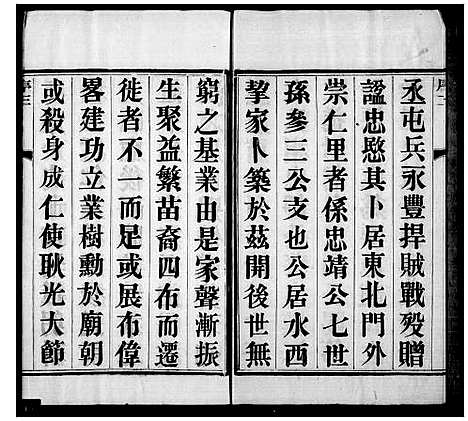 丞屯兵永豐捍賊戰歿贈
諡忠愍其卜居東北門外
崇仁里者係忠靖公七世
孫參三公支也公居水西
挈家卜築於茲開後世無
窮之基業由是家聲漸振
生聚益繁苗裔四布而遷
徙者不一而足或展布偉
畧建功立業樹勳於廟朝
或殺身成仁使耿光大節